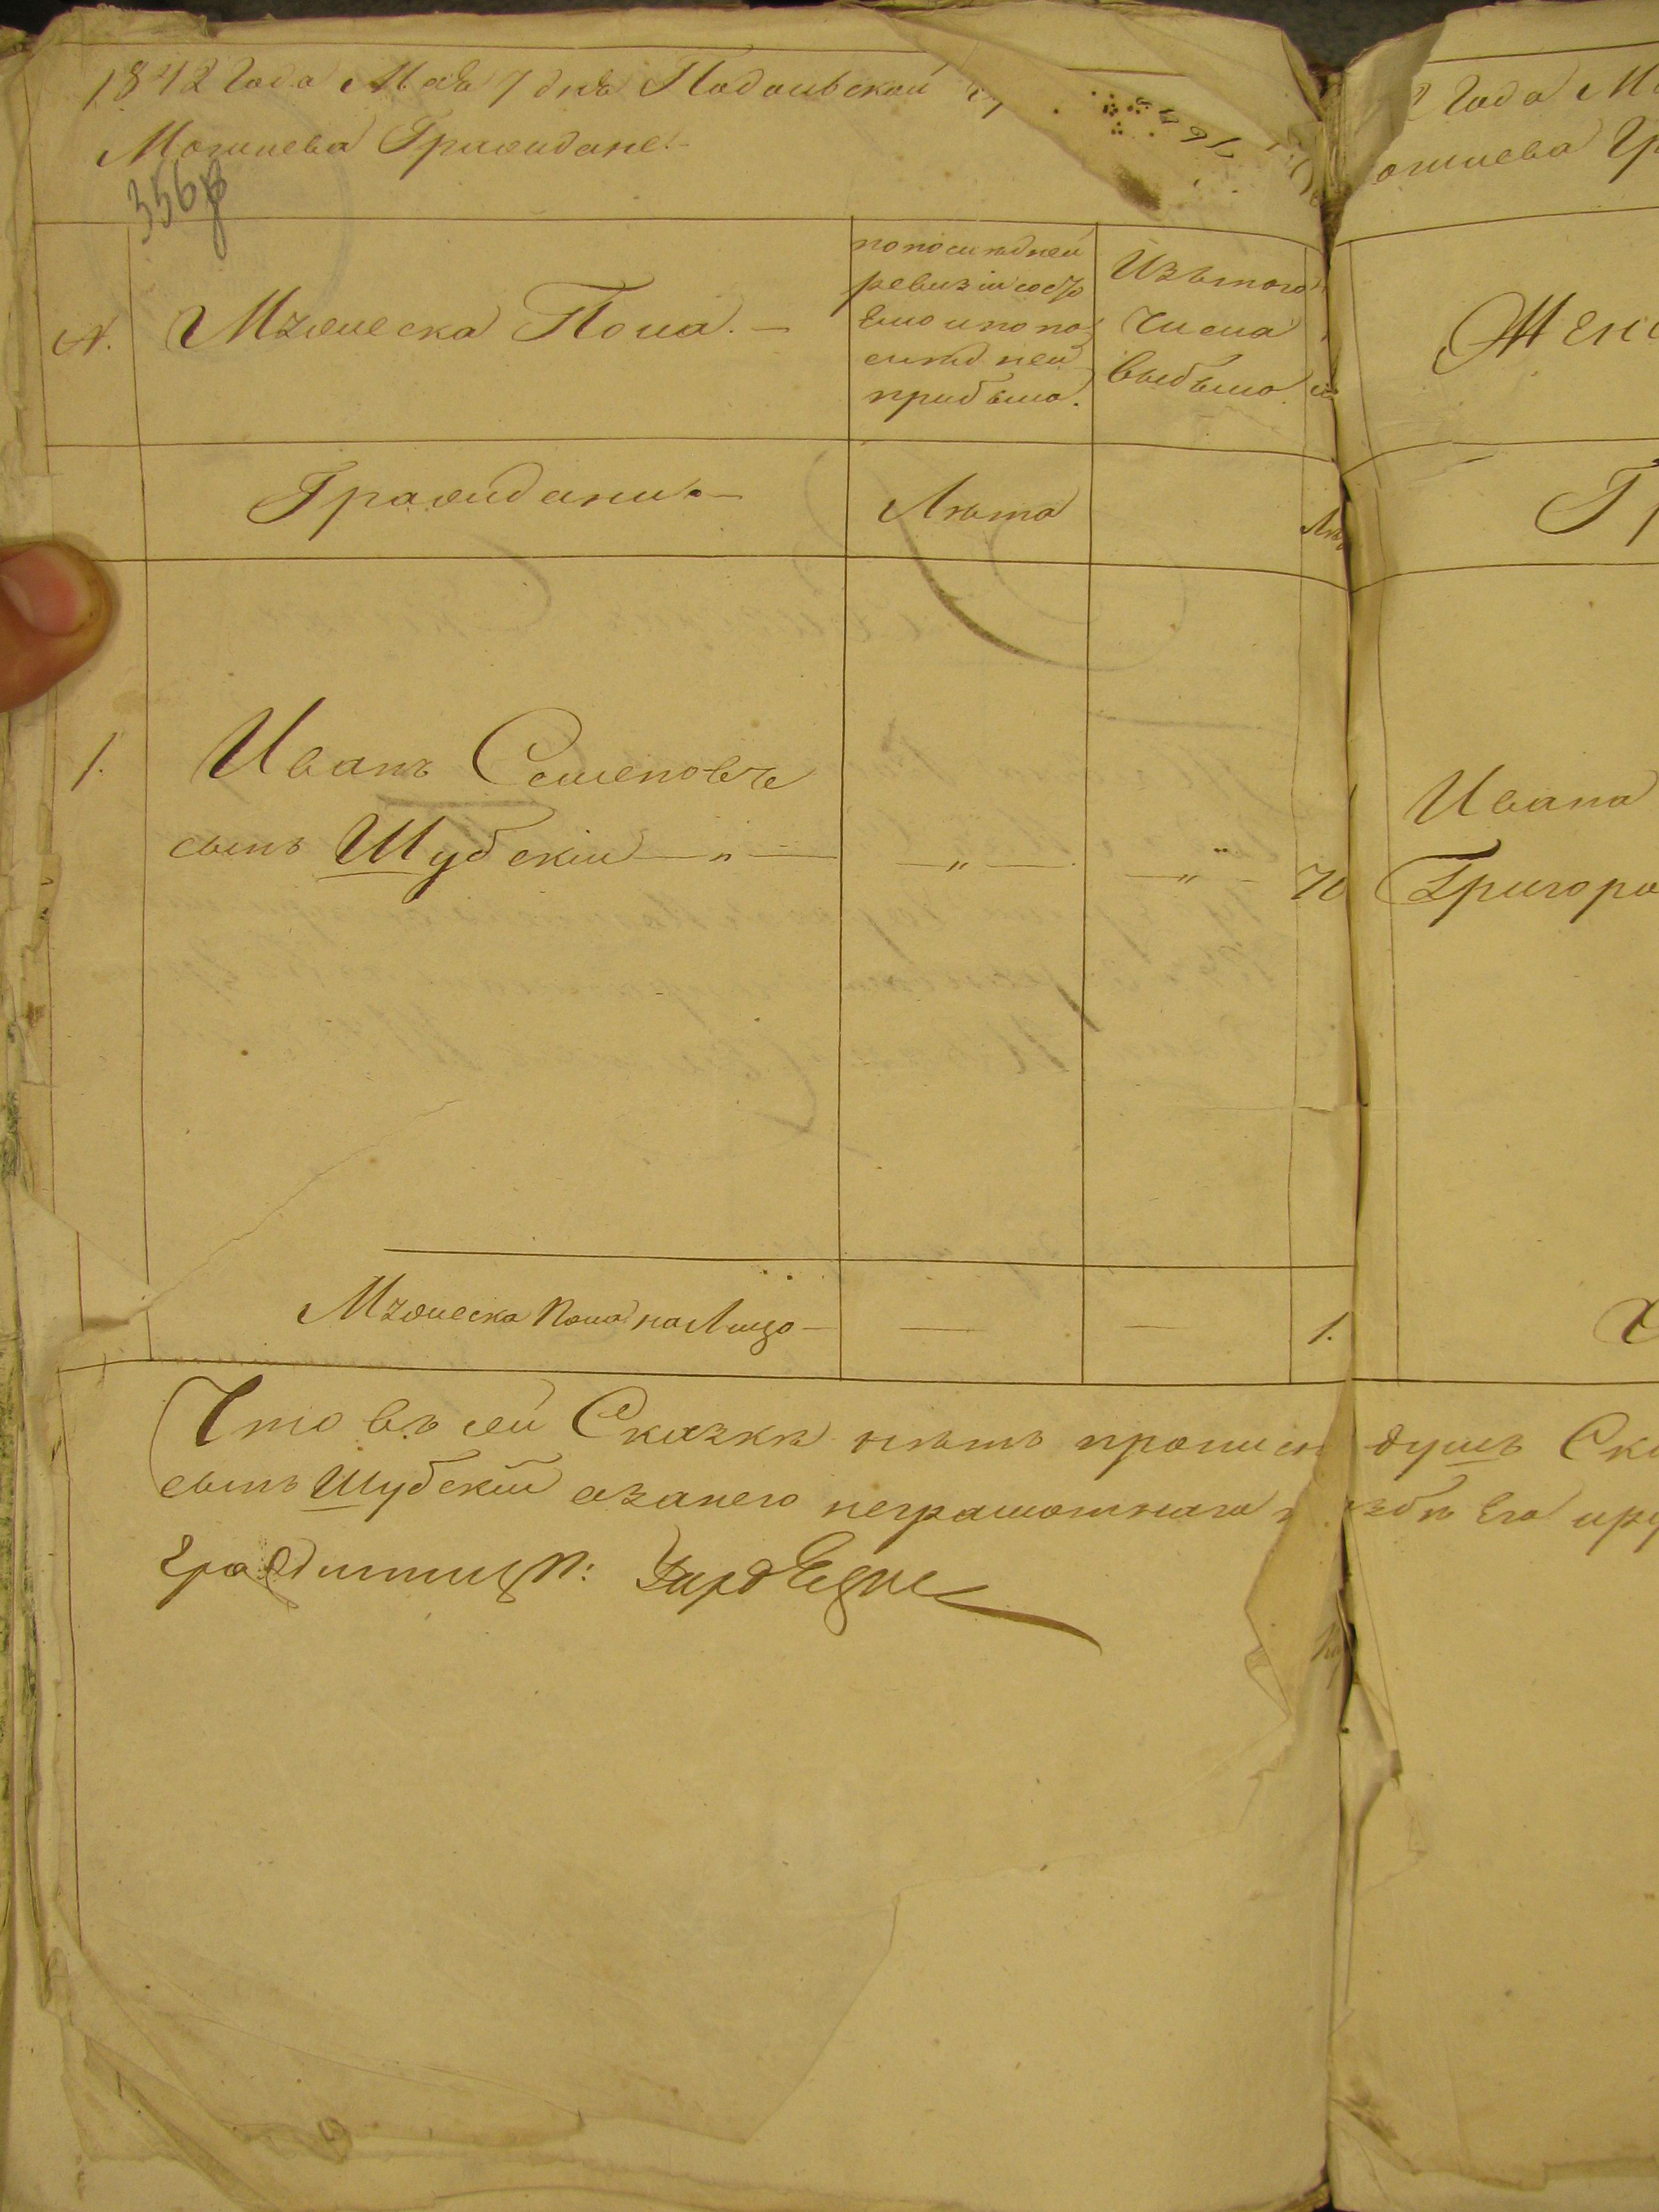 1842 Года Мая 7 дня Подольской
Могилева Граждане
356
№. Мужеска Пола.
по последней
ревизіи состо
яло и по по
следней
прибыло.
Изъ того
числа
выбыло.
Граждани
Лѣта
Лѣ
1. Иванъ Семеновъ
сынъ Шубскій — „ — — „ — — „ — 70
Мужеска Пола на Лицо — — — 1.
Что въ сей Сказкѣ нѣтъ прописн
сынъ Шубскій а за него неграмотнаго
2 Года М
огилева Гр
Жен
Г
Ивана
Григоро
душъ Ска
его